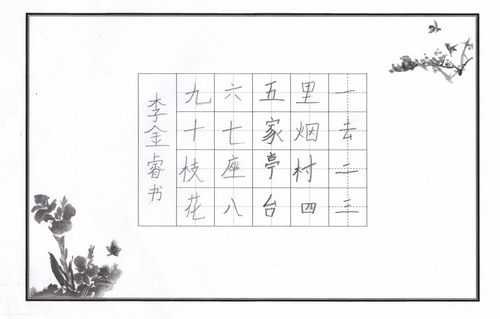 一去二三
里烟村四
五家亭台
六七座八
九十枝花
李金睿书